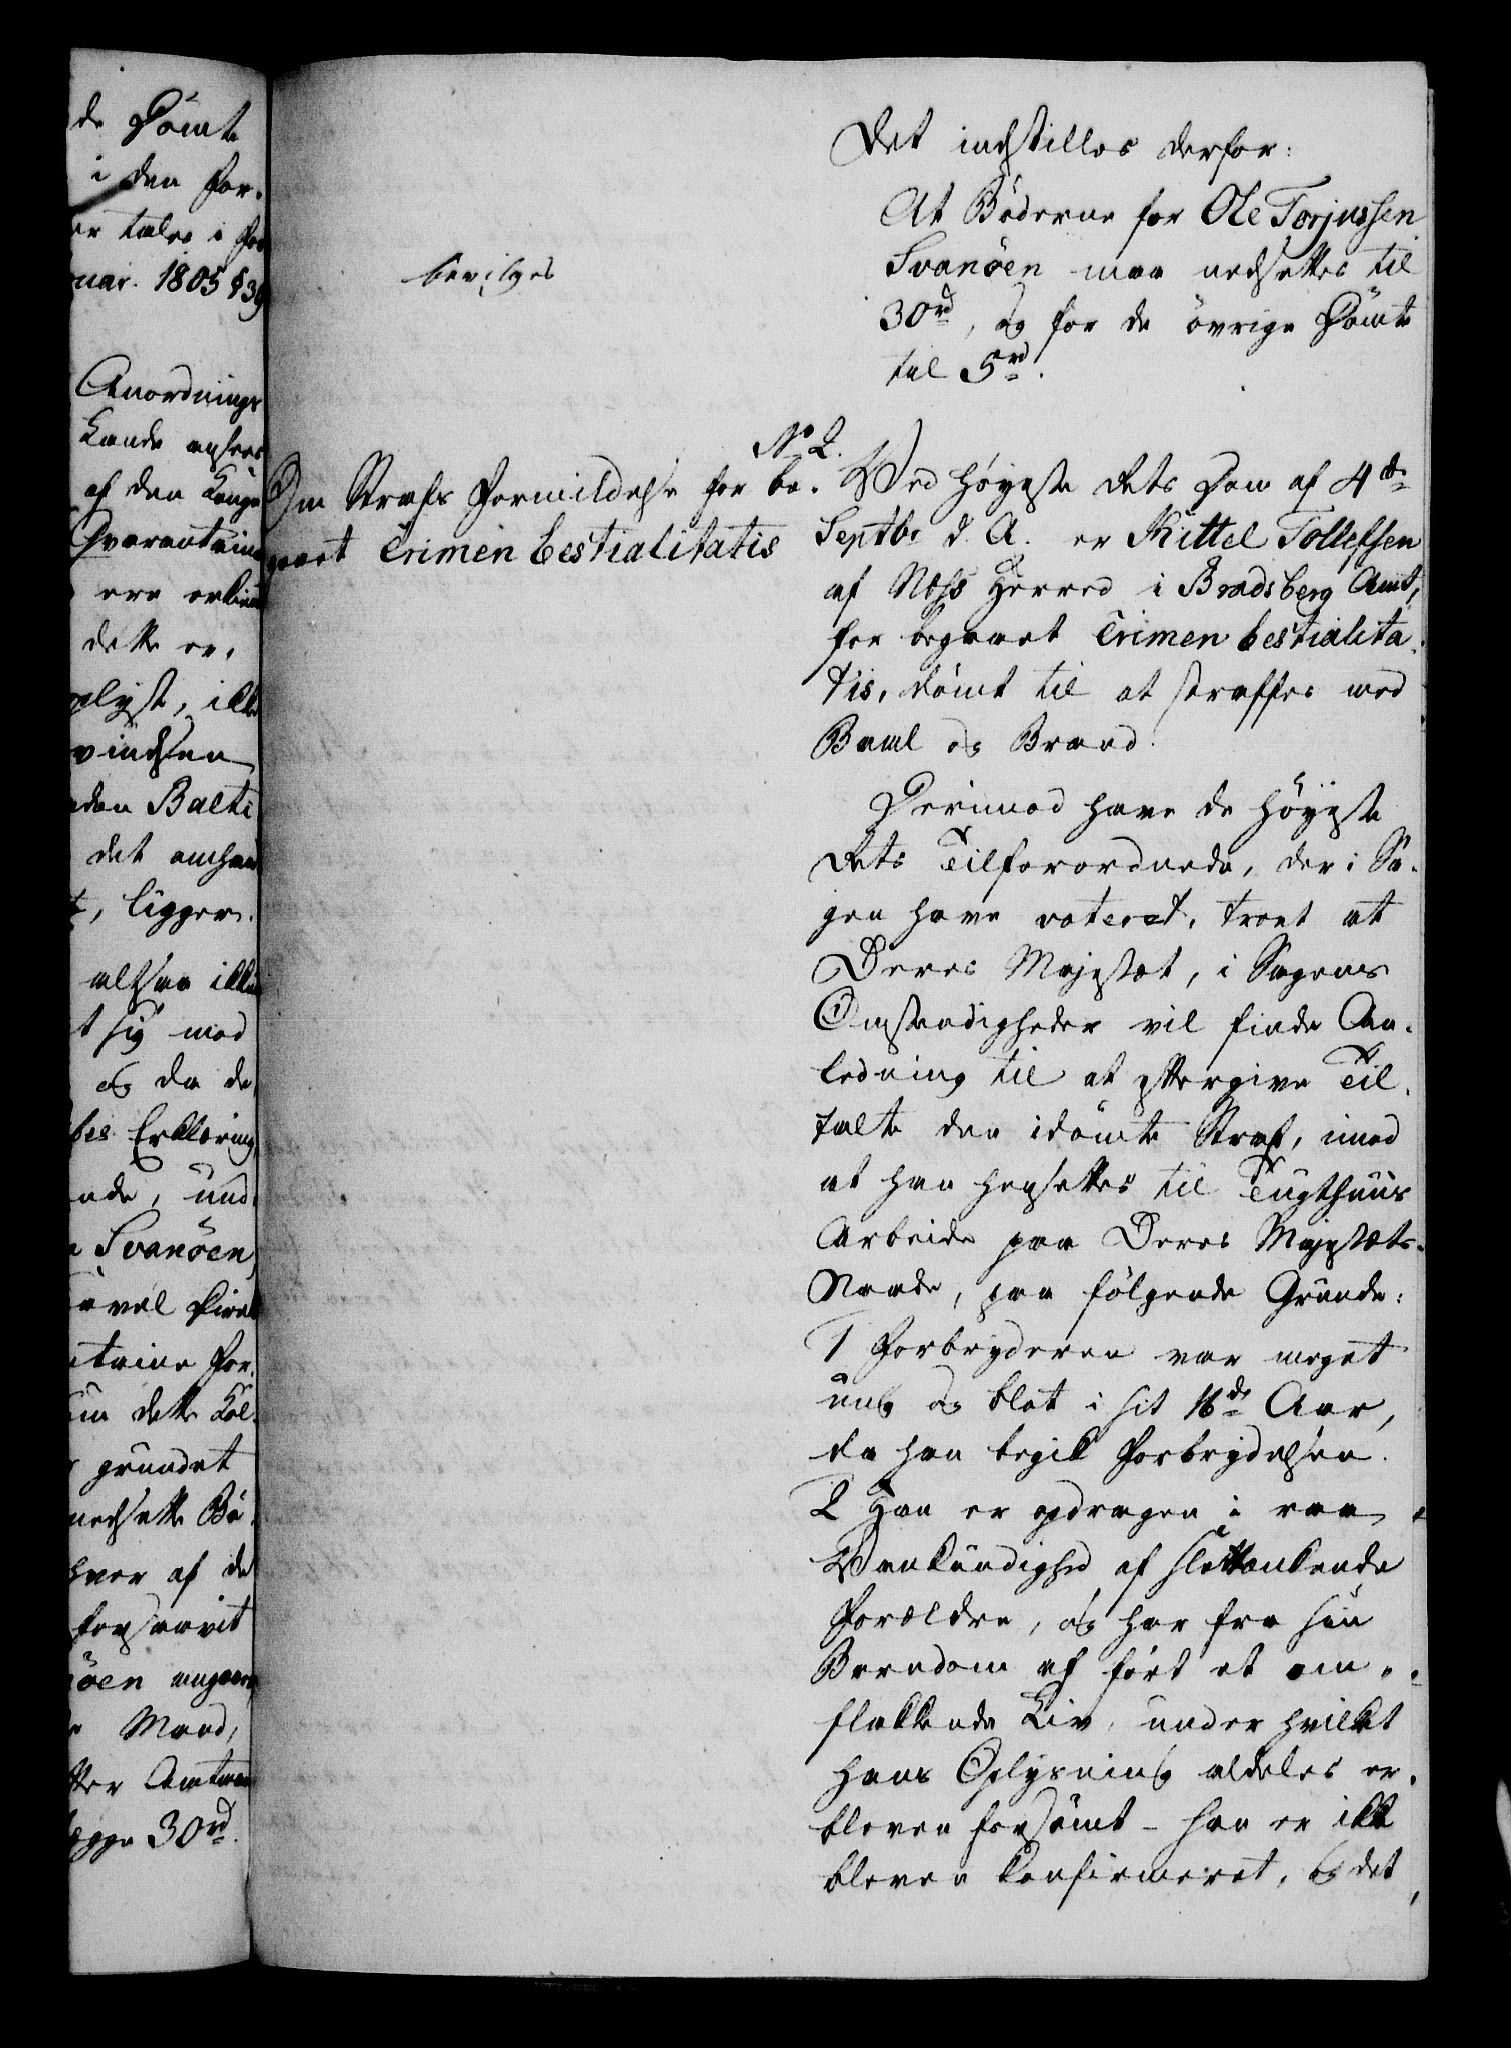 de Dömte
i den For-
er tales i For
nuar. 1805 § 39
Anordnings
Kunde ansees
af den Konge
Qvarantaine
ere erkiendt
dette er,
plyst, ikke
vindsen
den Balti
det omhan
t, ligger.
altsaa ikke
t sig med
og da de
bes Erklæring,
ende, und
n Svanöen,
saavel Direk
ntaine For-
um dette Kol-
grundet
nedsætte Bö-
hver af de
forsaavit
öen angaaer
e Mand,
ter Amtman
lægge 30rd.
Det indstilles derfor:
At Böderne for Ole Torjussen
Svanöen maa nedsættes til
bevilges
30rd, og for de övrige Dömte
til 5rd.
No 2.
Om Straffs Formildelse for be-
gaaet Crimen bestialitatis
Ved Høyeste Rets Dom af 4de
Septbr d. A. er Kittel Tollefsen
af Næss Herred i Bradsberg Amt,
for begaaet Crimen bestialita-
tis, dömt til at straffes med
Baal og Brand.
Derimod have de Höyeste
Rets Tilforordnede, der i Sa-
gen have voteret, troet at
Deres Majestæt, i Sagens
Omstændigheder vil finde An-
ledning til at eftergive Til-
talte den idömte Straf, imod
at han hensættes til Tugthuus
Arbeide paa Deres Majestæts
Naade, paa fölgende Grunde:
1 Forbryderen var meget
ung og blot i sit 16de Aar,
da han begik Forbrydelsen.
2 Han er opdragen i raa
Vankundighed af slettænkende
Forældre, og har fra sin
Barndom af fört et om-
flakkende Liv, under hvilket
hans Oplysning aldeles er
bleven forsömt - han er ikke
bleven konfirmeret, og det